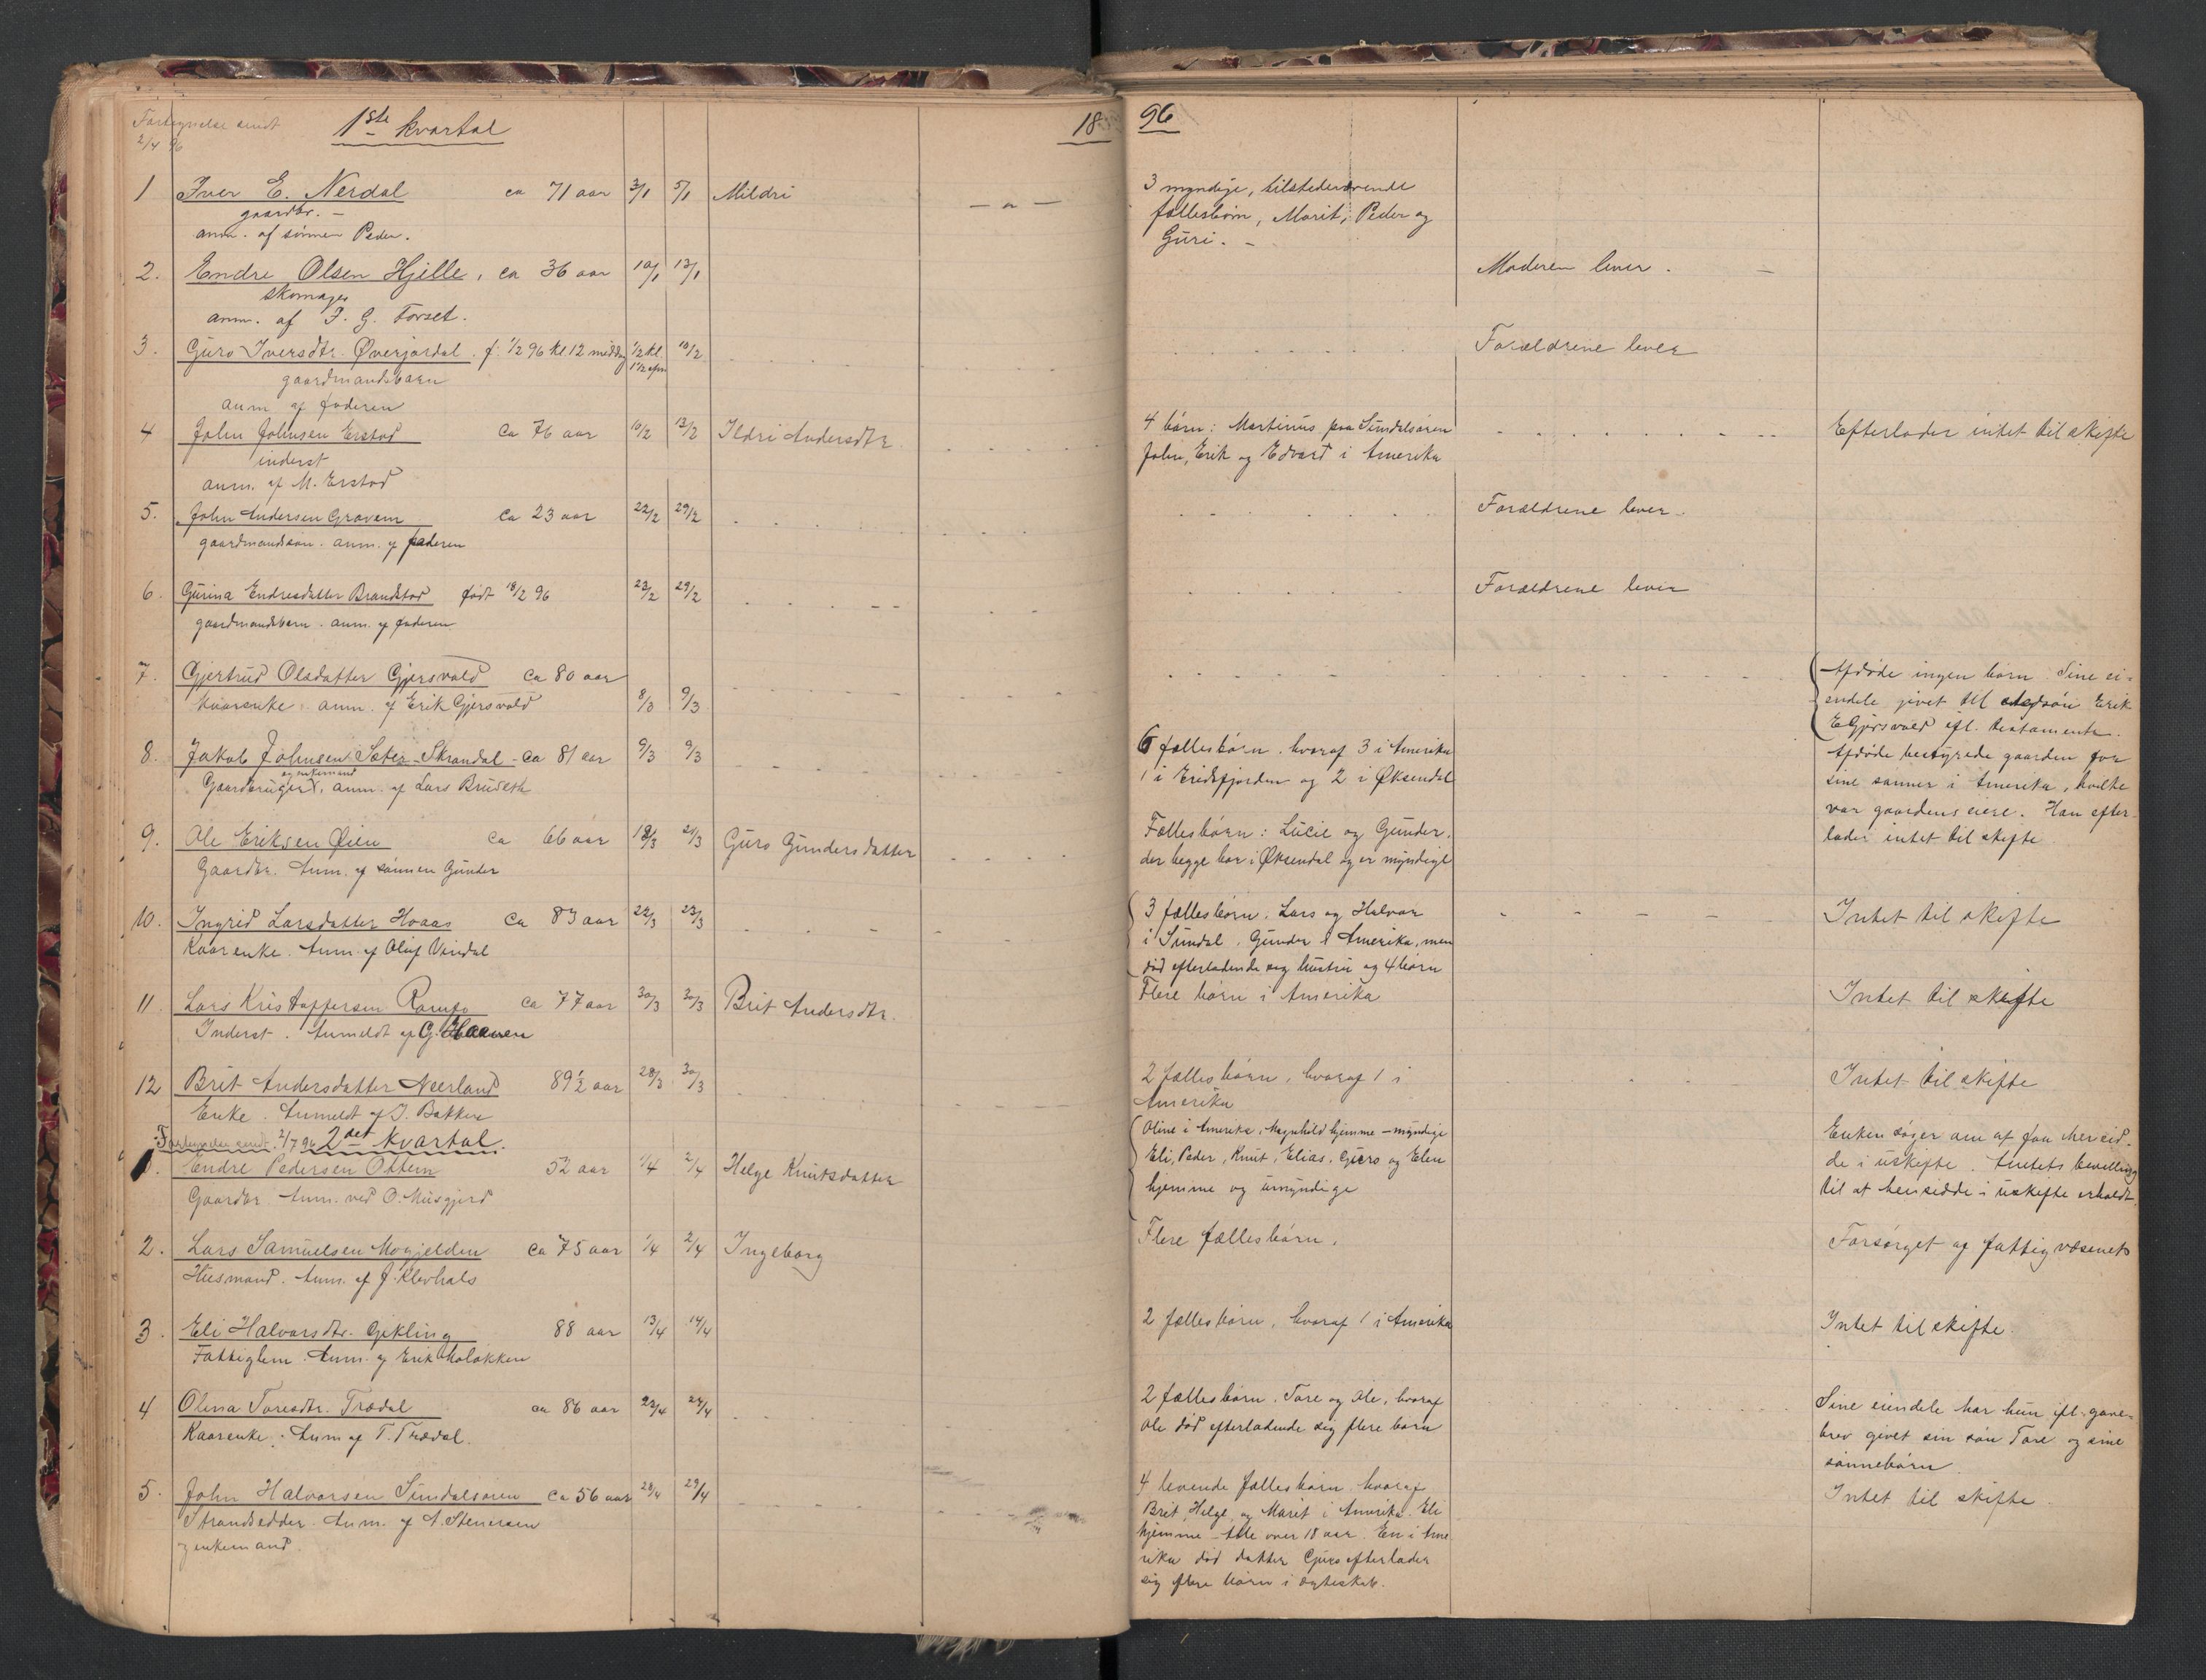 Fortegnelse sendt
2/4 96
1ste kvartal
1896
1 Iver E. Nerdal ca 71 aar 3/1 5/1 Mildri — " —
gaardbr. —
anm. af sønnen Peder.
3 myndige, tilstedeværende
fællesbørn, Marit, Peder og
Guri. —
2. Endre Olsen Hjelle, ca 36 aar 10/1 13/1
skomager
anm. af J. G. Forset.
Moderen lever. —
3. Guro Iversdtr. Øverjordal. f. 1/2 96 kl 12 middag 1/2 kl. 1 1/2 efm 10/2
gaardmandsbarn
anm af faderen
Forældrene lever
4 John Johnsen Erstad ca 76 aar 10/2 13/2 Ildri Andersdtr
inderst
anm. af M. Erstad
4 børn: Martinus paa Sundalsøren
John, Erik og Edvard i Amerika
Efterlader intet til skifte
5. John Andersen Gravem ca 23 aar 22/2 29/2
gaardmandssøn. anm. af faderen
Forældrene lever.
6. Gurina Endresdatter Brandstad født 18/2 96 23/2 29/2
gaardmandsbarn. anm. af faderen
Forældrene lever
7. Gjertrud Olsdatter Gjørsvold ca 80 aar
Kaarenke. anm. af Erik Gjørsvold 8/3 9/3
Afdøde ingen børn. Sine ei-
endele givet til stedsøn Erik
E Gjørsvold efl. testamente.
8. Jakob Johnsen Sæter-Skrondal - ca 81 aar 9/3 9/3
og enkemand
Gaardbruger, anm. af Lars Brudeth
6 fællesbørn, hvoraf 3 i Amerika
1 i Eridsfjorden og 2 i Øksendal
Afdøde bestyrede gaarden for
sine sønner i Amerika, hvilke
var gaardens eiere. Han efter-
lader intet til skifte
9. Ole Eriksen Øien ca 66 aar 18/3 21/3 Guro Gundersdatter
Gaardbr. Anm. af sønnen Gunder
Fællesbørn: Lucie og Gunder.
der begge bor i Øksendal og er myndige
10. Ingrid Larsdatter Hoaas ca 83 aar 22/3 23/3
Kaarenke. Anm. af Oluf Vindal
3 fællesbørn. Lars og Halvor
i Sundal. Gunder i Amerika, men
død efterladende sig hustru og 4 børn
Intet til skifte
11. Lars Kristoffersen Romfo ca 77 aar 30/3 30/3 Brit Andersdtr.
Inderst. Anmeldt af G. Hoaaven
Flere børn i Amerika
Intet til skifte
12 Brit Andersdatter Neerland 89 1/2 aar 28/3 30/3
Enke. Anmeldt af J. Bakken
2 fællesbørn, hvoraf 1 i
Amerika
Intet til skifte
Fortegnelse sendt 2/7 96 2det kvartal.
1. Endre Pedersen Ottem 52 aar 1/4 2/4 Helge Knutsdatter
Gaardbr. Anm. ved O. Musgjerd
Oline i Amerika, Magnhild hjemme - myndige
Eli, Peder, Knut, Elias, Guro og Elen
hjemme og umyndige
Enken søger om at faa hensid-
de i uskifte. Amtets bevilling
til at hensidde i uskifte erholdt
2. Lars Samuelsen Mogjelden ca 75 aar 1/4 2/4 Ingeborg
Husmand. Anm. af J. Klevhals
Flere fællesbørn.
Forsørget af fattigvæsenet
3. Eli Halvorsdtr. Gikling 88 aar 13/4 14/4
Fattiglem. Anm. af Erik Moløkken
2 fællesbørn, hvoraf 1 i Amerika
Intet til skifte.
4 Olina Toresdtr. Trædal ca 86 aar 23/4 24/4
Kaarenke. Anm af T. Trædal.
2 fællesbørn. Tore og Ole, hvoraf
Ole død efterladende sig flere barn
Sine eiendele har hun efl. gave-
brev givet sin søn Tore og sine
sønnebørn
5. John Halvorsen Sundalsøren ca 56 aar 28/4 29/4
Strandsidder. Anm. af A. Stenersen
og enkemand.
4 levende fællesbørn hvoraf
Brit, Helge og Marit i Amerika. Eli
hjemme - Alle over 18 aar. En i Ame
rika død datter Guro efterlader
sig flere børn i ægteskab.
Intet til skifte.